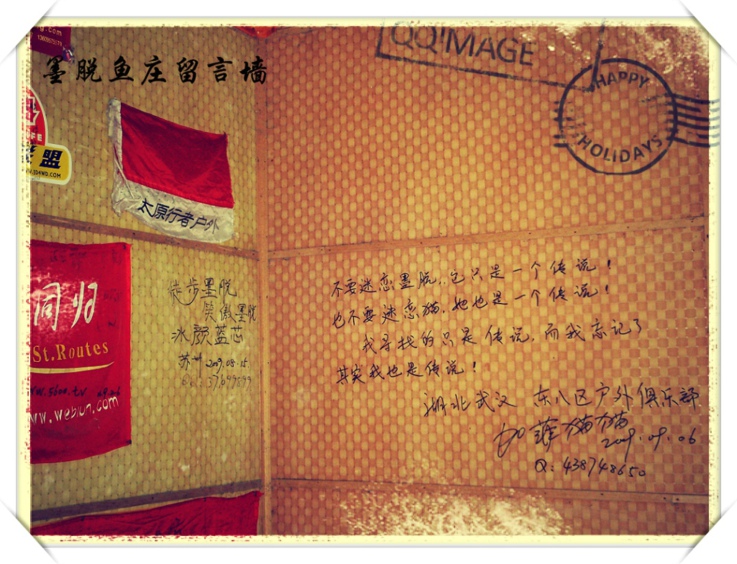 墨脱鱼庄留言墙
QQ!MAGE
HAPPY
HOLIDAYS
盟
太原行者户外
同归
St.Routes
徒步墨脱
笑傲墨脱
冰颜蓝芯
苏州 2009.08.15.
不要迷恋墨脱,它只是一个传说!
也不要迷恋猫,她也是一个传说!
我寻找的只是传说,而我忘记了
其实我也是传说!
湖北武汉 东八区户外俱乐部
加菲猫猫
2009.09.06
Q:438748650